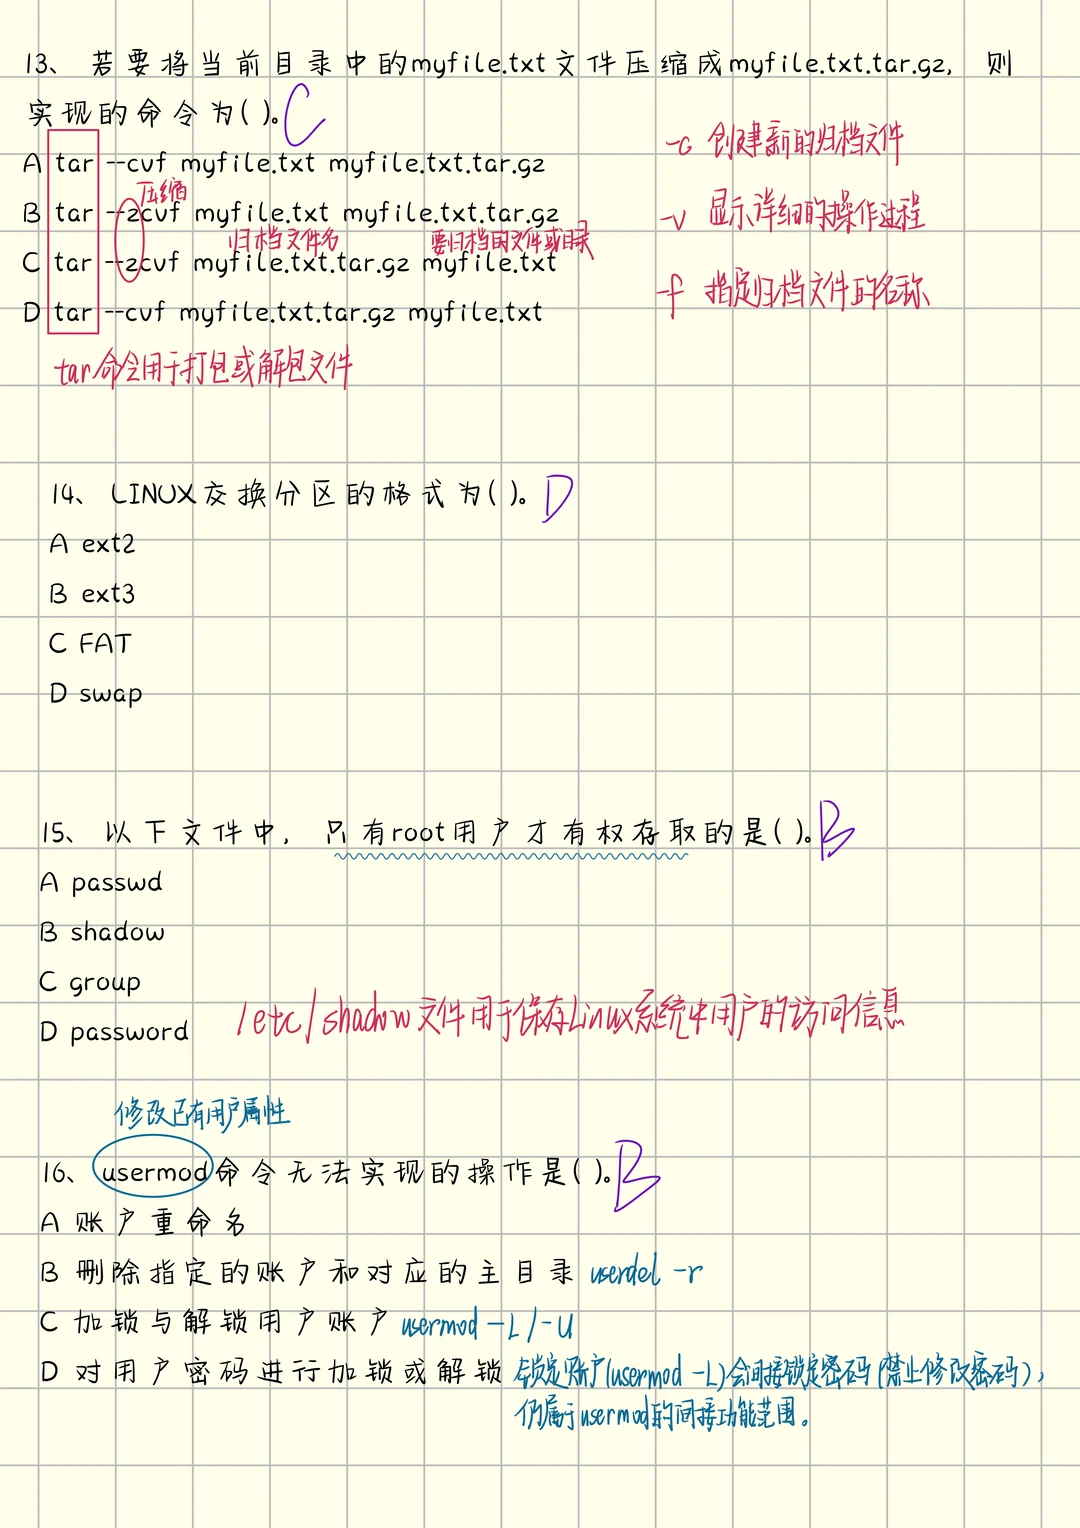 13、若要将当前目录中的myfile.txt文件压缩成myfile.txt.tar.gz，则
实现的命令为( )。C
A tar --cvf myfile.txt myfile.txt.tar.gz
-c 创建新的归档文件
压缩
B tar --zcvf myfile.txt myfile.txt.tar.gz
-v 显示详细的操作过程
归档文件名 要归档的文件或目录
C tar --zcvf myfile.txt.tar.gz myfile.txt
-f 指定归档文件的名称
D tar --cvf myfile.txt.tar.gz myfile.txt
tar命令用于打包或解包文件
14、LINUX交换分区的格式为( )。D
A ext2
B ext3
C FAT
D swap
15、以下文件中，只有root用户才有权存取的是( )。B
A passwd
B shadow
C group
D password
/etc/shadow文件用于保存Linux系统中用户的访问信息
修改已有用户属性
16、usermod命令无法实现的操作是( )。B
A 账户重命名
B 删除指定的账户和对应的主目录 userdel -r
C 加锁与解锁用户账户 usermod -L/-U
D 对用户密码进行加锁或解锁 锁定账户(usermod -L)会间接锁定密码(禁止修改密码)，
仍属于usermod的间接功能范围。